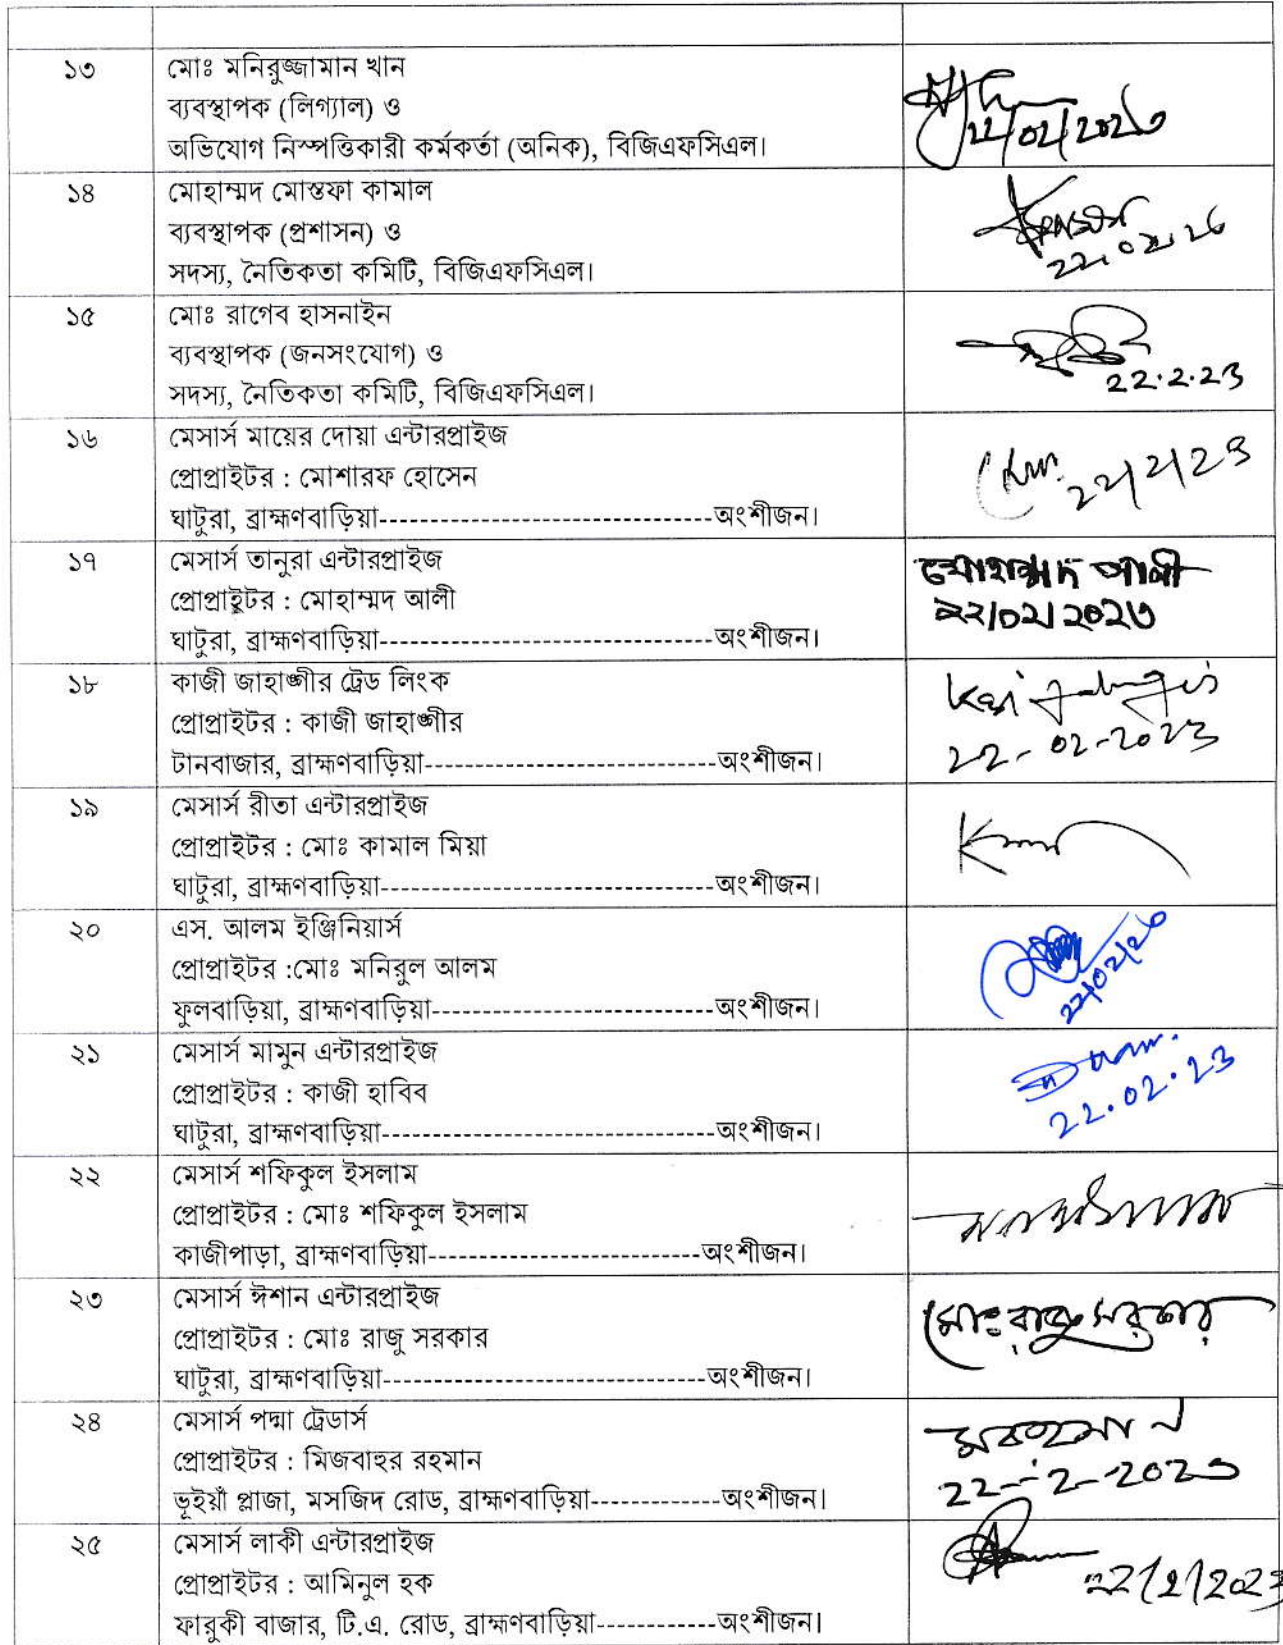 ১৩
মোঃ মনিরুজ্জামান খান
ব্যবস্থাপক (লিগ্যাল) ও
অভিযোগ নিস্পত্তিকারী কর্মকর্তা (অনিক), বিজিএফসিএল।
22/02/2023
১৪
মোহাম্মদ মোস্তফা কামাল
ব্যবস্থাপক (প্রশাসন) ও
সদস্য, নৈতিকতা কমিটি, বিজিএফসিএল।
১৫
মোঃ রাগেব হাসনাইন
ব্যবস্থাপক (জনসংযোগ) ও
সদস্য, নৈতিকতা কমিটি, বিজিএফসিএল।
22.2.23
১৬
মেসার্স মায়ের দোয়া এন্টারপ্রাইজ
প্রোপ্রাইটর : মোশারফ হোসেন
ঘাটুরা, ব্রাহ্মণবাড়িয়া--------------------------------অংশীজন।
22/2/23
১৭
মেসার্স তানুরা এন্টারপ্রাইজ
প্রোপ্রাইটর : মোহাম্মদ আলী
ঘাটুরা, ব্রাহ্মণবাড়িয়া--------------------------------অংশীজন।
মোহাম্মদ আলী
২২/০২/২০২৩
১৮
কাজী জাহাঙ্গীর ট্রেড লিংক
প্রোপ্রাইটর : কাজী জাহাঙ্গীর
টানবাজার, ব্রাহ্মণবাড়িয়া----------------------------অংশীজন।
22-02-2023
১৯
মেসার্স রীতা এন্টারপ্রাইজ
প্রোপ্রাইটর : মোঃ কামাল মিয়া
ঘাটুরা, ব্রাহ্মণবাড়িয়া--------------------------------অংশীজন।
২০
এস. আলম ইঞ্জিনিয়ার্স
প্রোপ্রাইটর :মোঃ মনিরুল আলম
ফুলবাড়িয়া, ব্রাহ্মণবাড়িয়া---------------------------অংশীজন।
২২/০২/২৩
২১
মেসার্স মামুন এন্টারপ্রাইজ
প্রোপ্রাইটর : কাজী হাবিব
ঘাটুরা, ব্রাহ্মণবাড়িয়া--------------------------------অংশীজন।
22.02.23
২২
মেসার্স শফিকুল ইসলাম
প্রোপ্রাইটর : মোঃ শফিকুল ইসলাম
কাজীপাড়া, ব্রাহ্মণবাড়িয়া--------------------------অংশীজন।
২৩
মেসার্স ঈশান এন্টারপ্রাইজ
প্রোপ্রাইটর : মোঃ রাজু সরকার
ঘাটুরা, ব্রাহ্মণবাড়িয়া-------------------------------অংশীজন।
মোঃ রাজু সরকার
২৪
মেসার্স পদ্মা ট্রেডার্স
প্রোপ্রাইটর : মিজবাহুর রহমান
ভূইয়াঁ প্লাজা, মসজিদ রোড, ব্রাহ্মণবাড়িয়া------------অংশীজন।
22-2-2023
২৫
মেসার্স লাকী এন্টারপ্রাইজ
প্রোপ্রাইটর : আমিনুল হক
ফারুকী বাজার, টি.এ. রোড, ব্রাহ্মণবাড়িয়া-----------অংশীজন।
22/2/2023